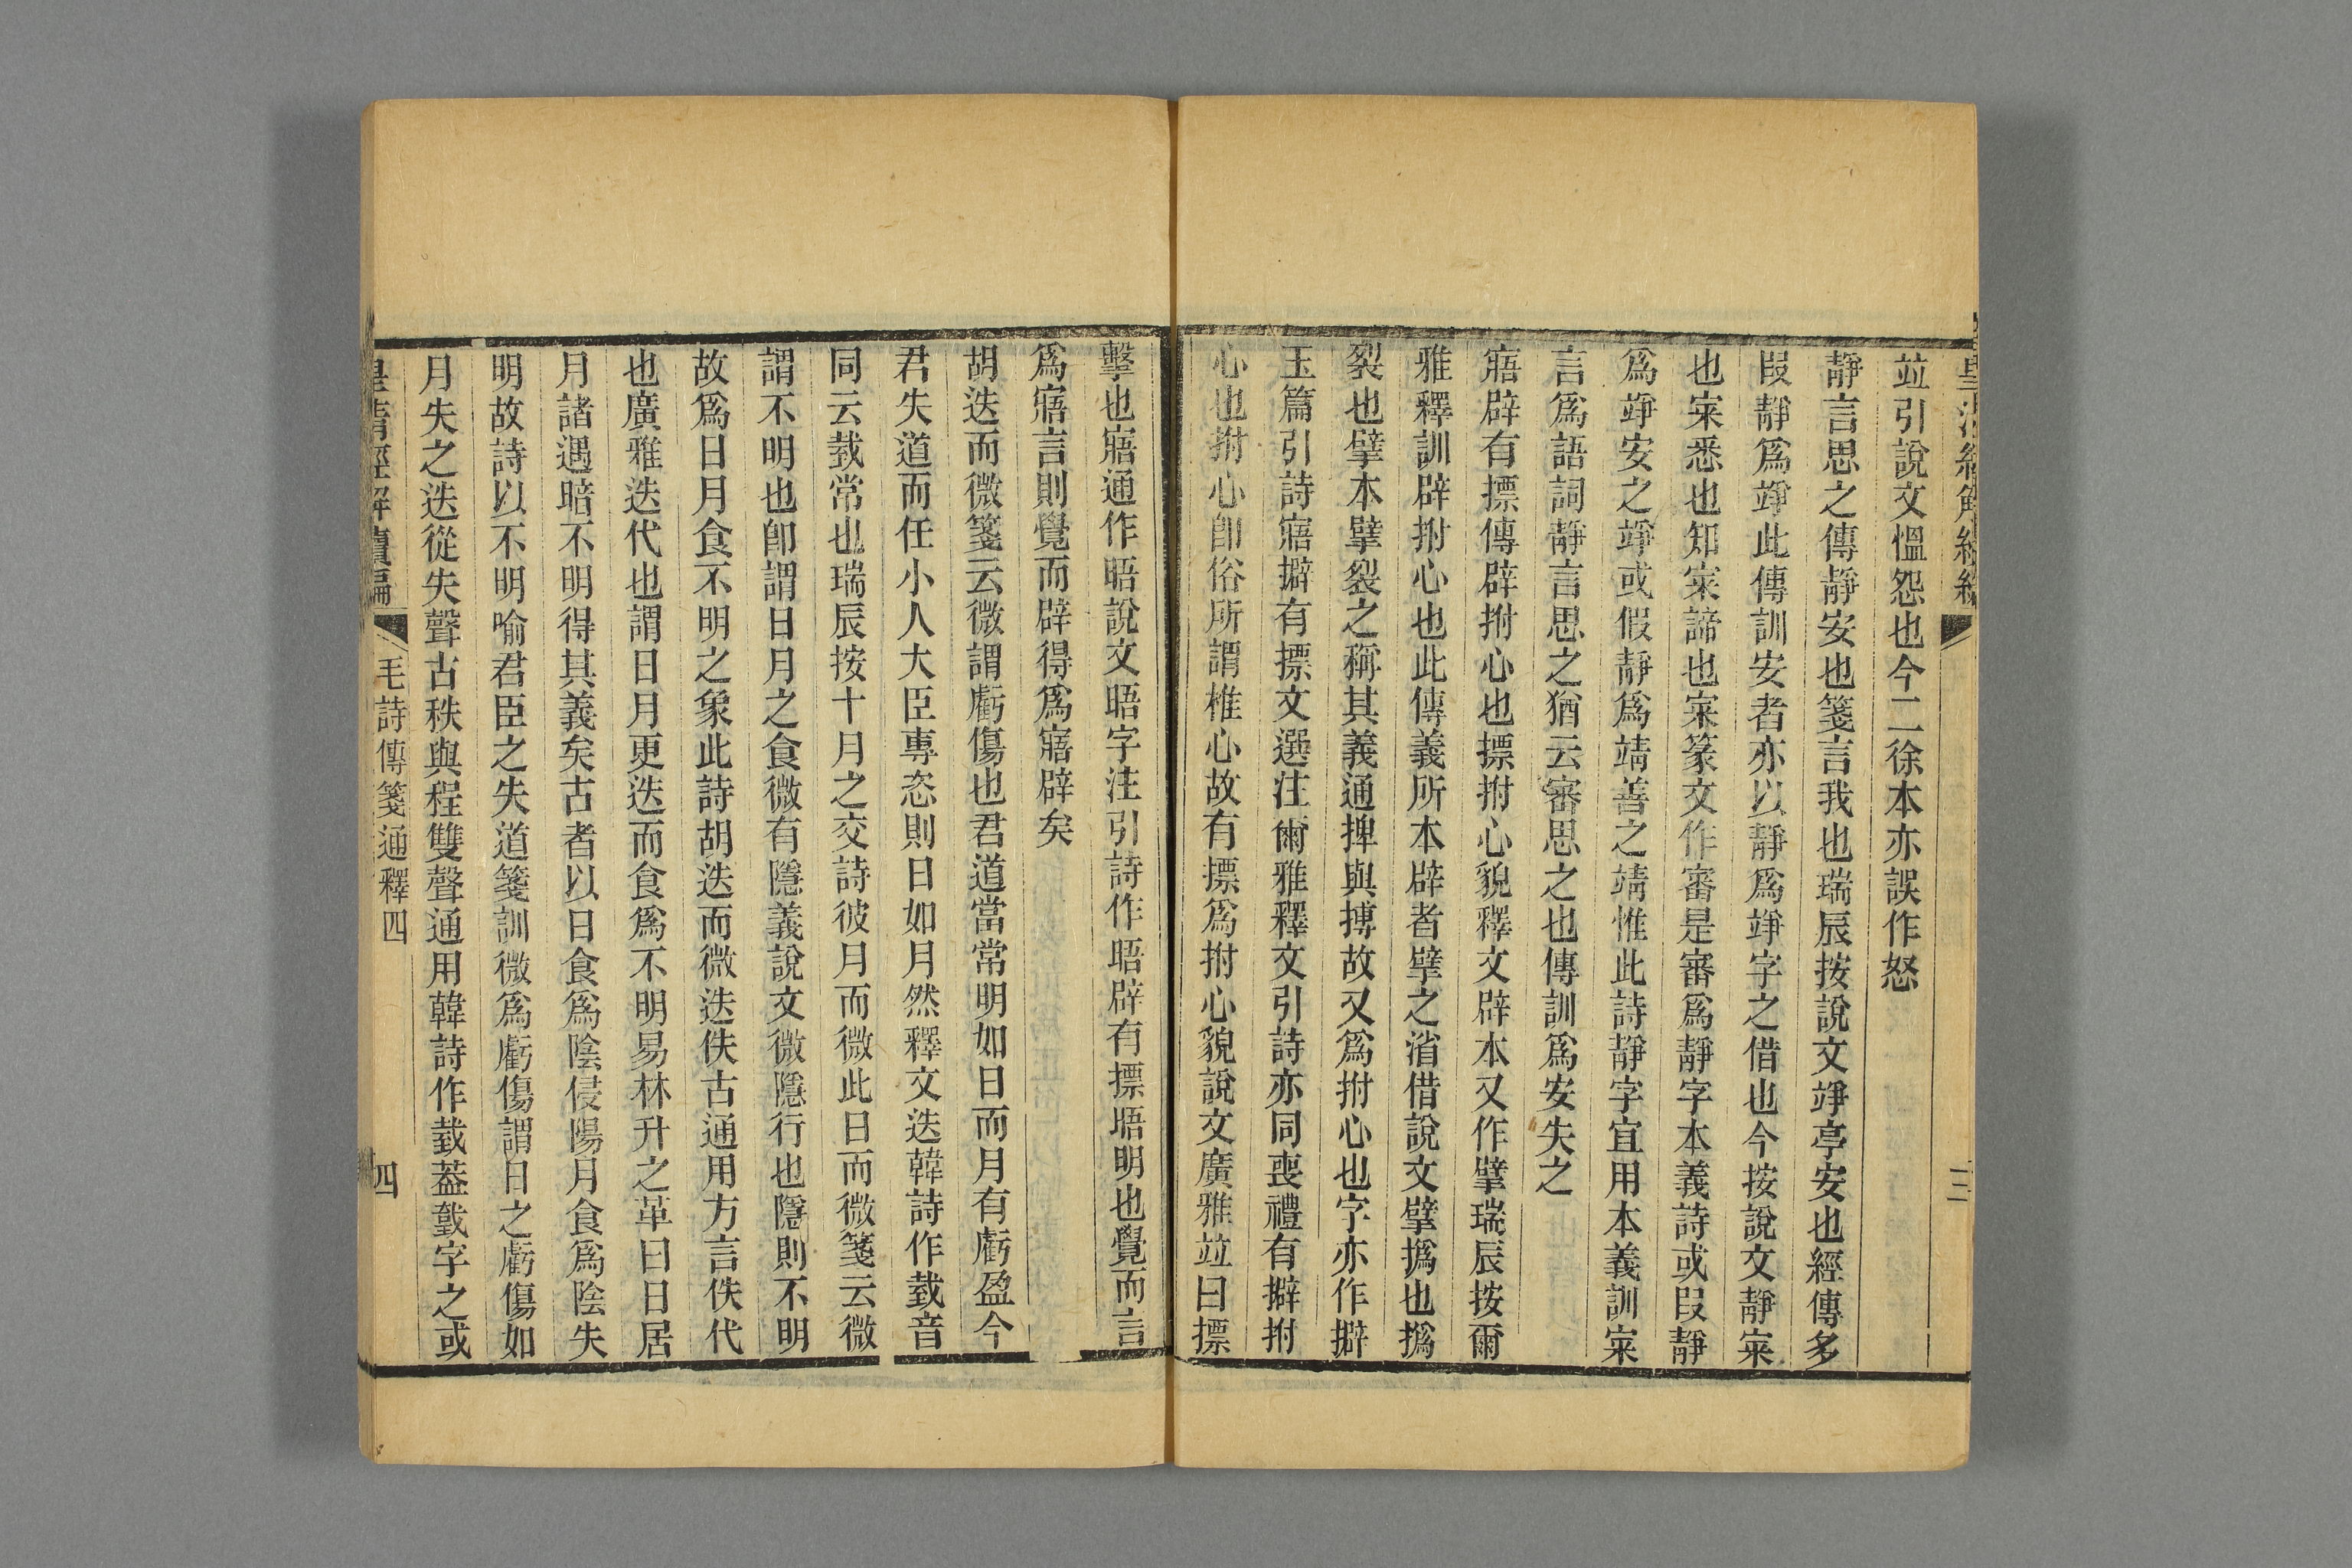 皇清經解續編
三
並引說文慍怨也今二徐本亦誤作怒
靜言思之傳靜安也箋言我也瑞辰按說文竫亭安也經傳多
叚靜爲竫此傳訓安者亦以靜爲竫字之借也今按說文靜寀
也寀悉也知寀諦也寀篆文作審是審爲靜字本義詩或叚靜
爲竫安之竫或假靜爲靖善之靖惟此詩靜字宜用本義訓寀
言爲語詞靜言思之猶云審思之也傳訓爲安失之
寤辟有摽傳辟拊心也摽拊心貌釋文辟本又作擘瑞辰按爾
雅釋訓辟拊心也此傳義所本辟者擘之渻借說文擘撝也撝
裂也擘本擘裂之稱其義通捭與搏故又爲拊心也字亦作擗
玉篇引詩寤擗有摽文選注爾雅釋文引詩亦同喪禮有擗拊
心也拊心卽俗所謂椎心故有摽爲拊心貌說文廣雅並曰摽
擊也寤通作晤說文晤字注引詩作晤辟有摽晤明也覺而言
爲寤言則覺而辟得爲寤辟矣
胡迭而微箋云微謂虧傷也君道當常明如日而月有虧盈今
君失道而任小人大臣專恣則日如月然釋文迭韓詩作臷音
同云臷常也瑞辰按十月之交詩彼月而微此日而微箋云微
謂不明也卽謂日月之食微有隱義說文微隱行也隱則不明
故爲日月食不明之象此詩胡迭而微迭佚古通用方言佚代
也廣雅迭代也謂日月更迭而食爲不明易林升之革曰日居
月諸遇暗不明得其義矣古者以日食爲陰侵陽月食爲陰失
明故詩以不明喻君臣之失道箋訓微爲虧傷謂日之虧傷如
月失之迭從失聲古秩與程雙聲通用韓詩作臷葢𢧜字之或
皇清經解續編
毛詩傳箋通釋四
四